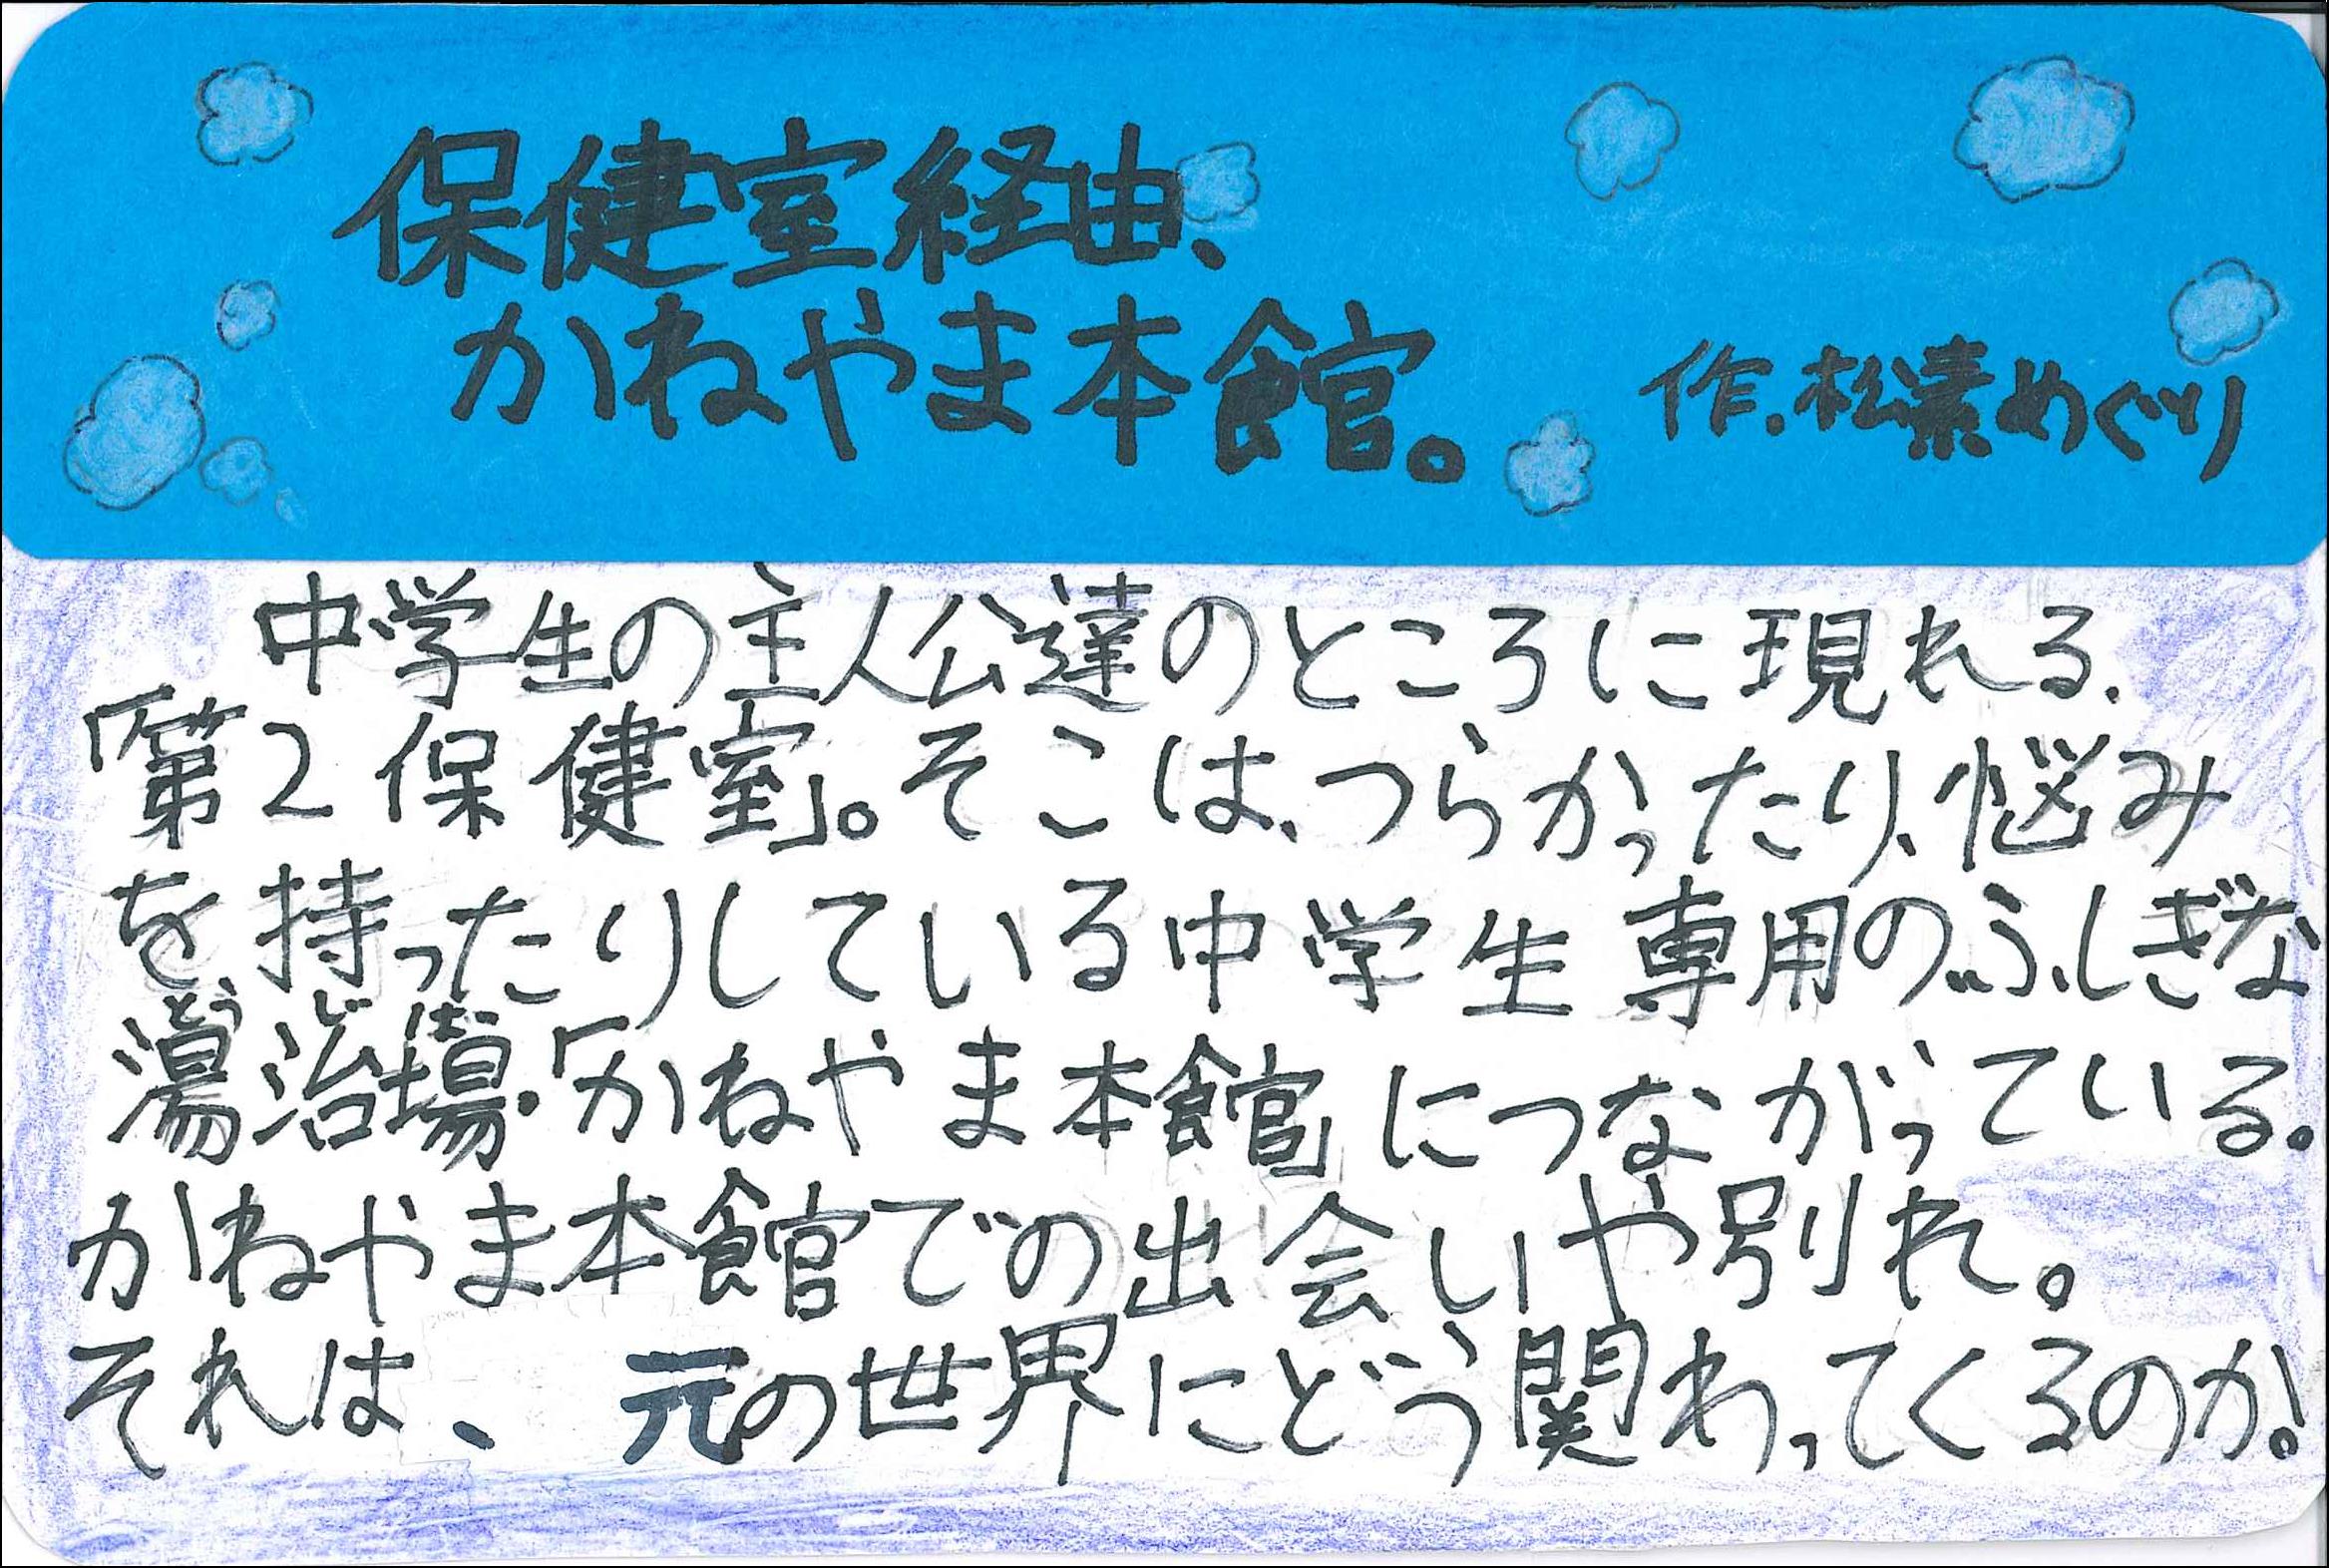 保健室経由、
かねやま本館。
作.松素めぐり
中学生の主人公達のところに現れる、
「第2保健室」。そこは、つらかったり、悩み
を持ったりしている中学生専用のふしぎな
とうじば
湯治場・「かねやま本館」につながっている。
かねやま本館での出会いや別れ。
それは、元の世界にどう関わってくるのか!